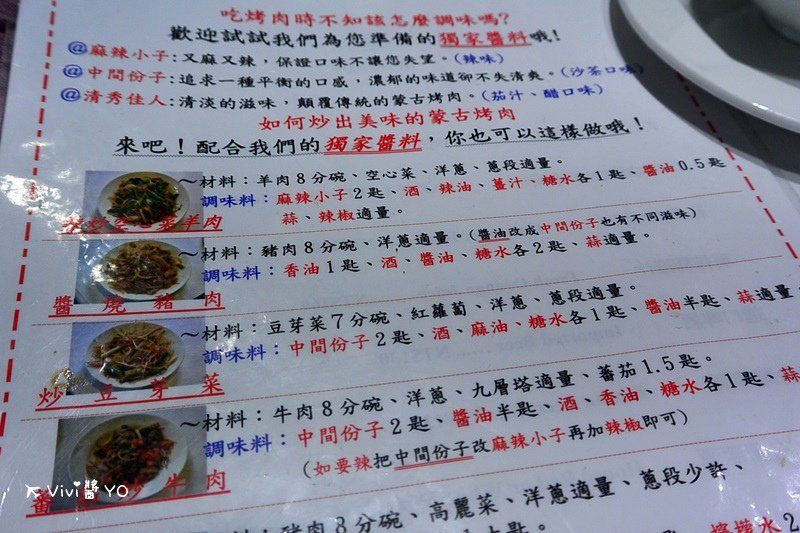 吃烤肉時不知該怎麼調味嗎?
歡迎試試我們為您準備的獨家醬料哦!
@麻辣小子:又麻又辣,保證口味不讓您失望。(辣味)
@中間份子:追求一種平衡的口感,濃郁的味道卻不失清爽。(沙茶口味)
@清秀佳人:清淡的滋味,顛覆傳統的蒙古烤肉。(茄汁、醋口味)
如何炒出美味的蒙古烤肉
來吧!配合我們的獨家醬料,你也可以這樣做哦!
~材料:羊肉8分碗、空心菜、洋蔥、蔥段適量。
調味料:麻辣小子2匙、酒、辣油、薑汁、糖水各1匙、醬油0.5匙
蒜、辣椒適量。
空心菜羊肉
~材料:豬肉8分碗、洋蔥適量。(醬油改成中間份子也有不同滋味)
調味料:香油1匙、酒、醬油、糖水各2匙、蒜適量。
醬燒豬肉
~材料:豆芽菜7分碗、紅蘿蔔、洋蔥、蔥段適量。
調味料:中間份子2匙、酒、麻油、糖水各1匙、醬油半匙、蒜適量。
炒豆芽菜
~材料:牛肉8分碗、洋蔥、九層塔適量、蕃茄1.5匙。
調味料:中間份子2匙、醬油半匙、酒、香油、糖水各1匙、蒜
(如要辣把中間份子改麻辣小子再加辣椒即可)
蕃 炒牛肉
豬肉8分碗、高麗菜、洋蔥適量、蔥段少許、
檸檬水2
Vivi醬YO